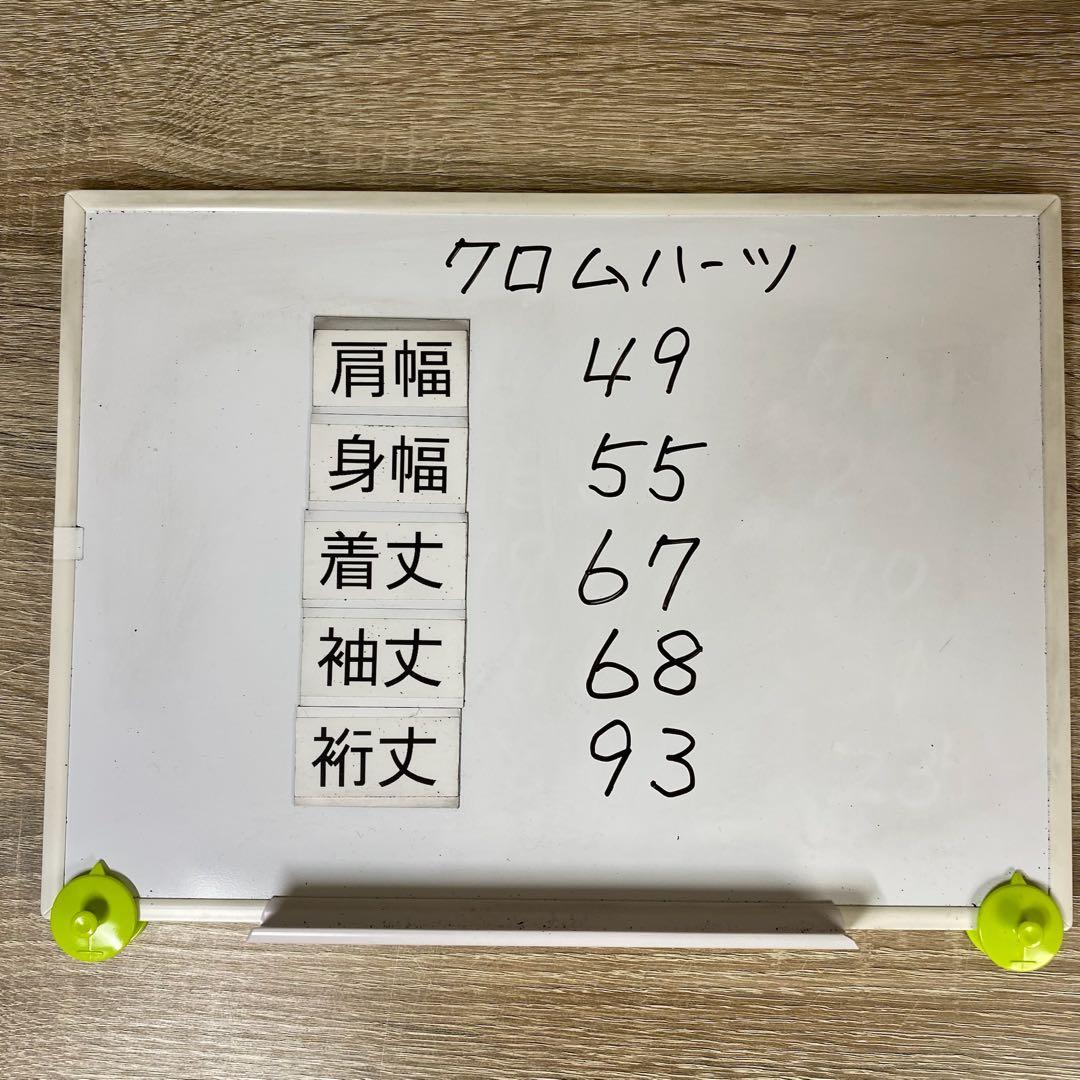 クロムハーツ
肩幅 49
身幅 55
着丈 67
袖丈 68
裄丈 93